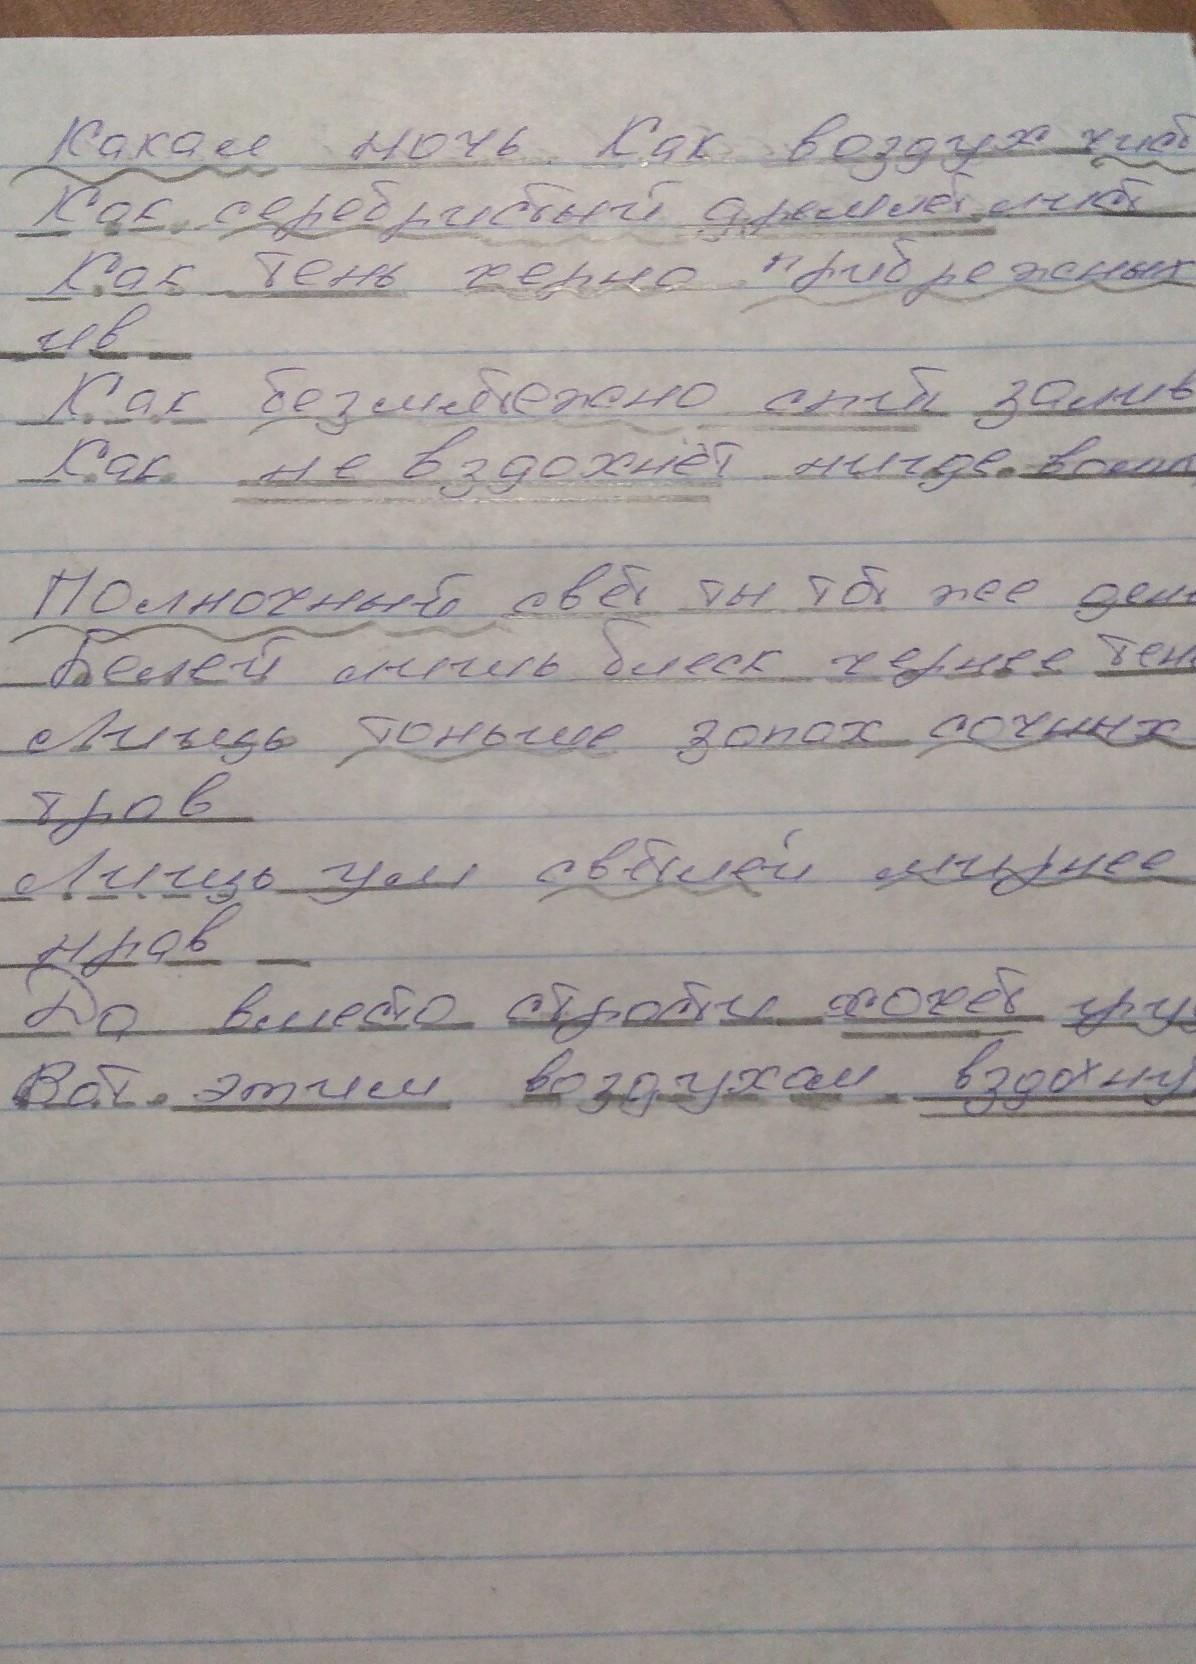 Какая ночь. Как воздух чист
Как серебристый дремлет лист
Как тень черно прибрежных
ив
Как безмятежно спит залив
Как не вздохнёт нигде волна
Полночный свет ты тот же ден
Белей лишь блеск чернее тен
Лишь тоньше запах сочных
трав
Лишь ум светлей мирнее
нрав
Да вместо страсти хочет гру
Вот этим воздухам вздохну